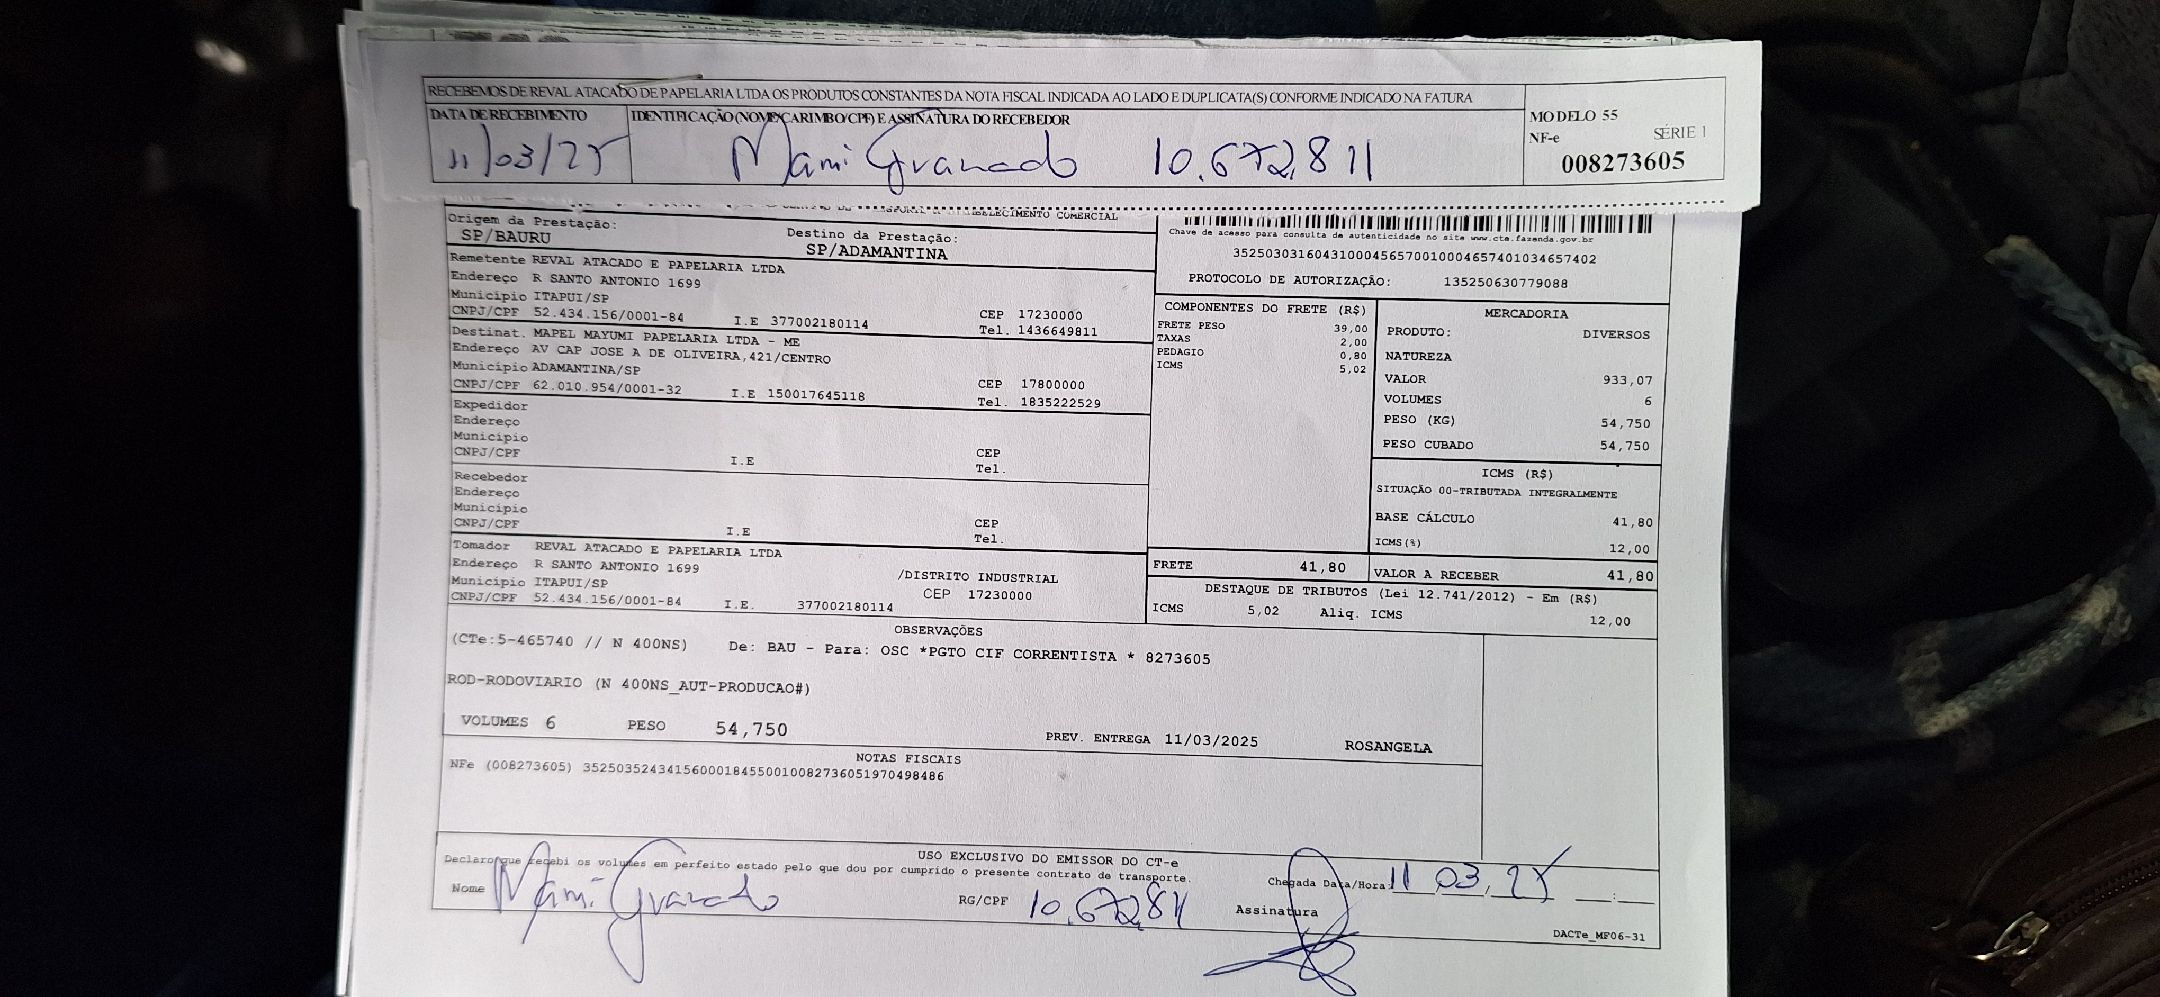 RECEBEMOS DE REVAL ATACADO DE PAPELARIA LTDA OS PRODUTOS CONSTANTES DA NOTA FISCAL INDICADA AO LADO E DUPLICATA(S) CONFORME INDICADO NA FATURA
DATA DE RECEBIMENTO
11/03/25
IDENTIFICAÇÃO (NOME/CARIMBO/CPF) E ASSINATURA DO RECEBEDOR
Granado 10.672.811
MODELO 55
NF-e SÉRIE 1
008273605
ESTABELECIMENTO COMERCIAL
Origem da Prestação:
SP/BAURU
Destino da Prestação:
SP/ADAMANTINA
Chave de acesso para consulta de autenticidade no site www.cte.fazenda.gov.br
35250303160431000456570010004657401034657402
PROTOCOLO DE AUTORIZAÇÃO: 135250630779088
Remetente REVAL ATACADO E PAPELARIA LTDA
Endereço R SANTO ANTONIO 1699
Município ITAPUI/SP CEP 17230000
CNPJ/CPF 52.434.156/0001-84 I.E 377002180114 Tel. 1436649811
Destinat. MAPEL MAYUMI PAPELARIA LTDA - ME
Endereço AV CAP JOSE A DE OLIVEIRA,421/CENTRO
Município ADAMANTINA/SP CEP 17800000
CNPJ/CPF 62.010.954/0001-32 I.E 150017645118 Tel. 1835222529
Expedidor
Endereço
Município CEP
CNPJ/CPF I.E Tel.
Recebedor
Endereço
Município CEP
CNPJ/CPF I.E Tel.
Tomador REVAL ATACADO E PAPELARIA LTDA
Endereço R SANTO ANTONIO 1699 /DISTRITO INDUSTRIAL
Município ITAPUI/SP CEP 17230000
CNPJ/CPF 52.434.156/0001-84 I.E. 377002180114
COMPONENTES DO FRETE (R$)
FRETE PESO 39,00
TAXAS 2,00
PEDAGIO 0,80
ICMS 5,02
MERCADORIA
PRODUTO: DIVERSOS
NATUREZA
VALOR 933,07
VOLUMES 6
PESO (KG) 54,750
PESO CUBADO 54,750
ICMS (R$)
SITUAÇÃO 00-TRIBUTADA INTEGRALMENTE
BASE CÁLCULO 41,80
ICMS(%) 12,00
FRETE 41,80 VALOR A RECEBER 41,80
DESTAQUE DE TRIBUTOS (Lei 12.741/2012) - Em (R$)
ICMS 5,02 Aliq. ICMS 12,00
OBSERVAÇÕES
(CTe:5-465740 // N 400NS) De: BAU - Para: OSC *PGTO CIF CORRENTISTA * 8273605
ROD-RODOVIARIO (N 400NS_AUT-PRODUCAO#)
VOLUMES 6 PESO 54,750 PREV. ENTREGA 11/03/2025 ROSANGELA
NOTAS FISCAIS
NFe (008273605) 35250352434156000184550010082736051970498486
USO EXCLUSIVO DO EMISSOR DO CT-e
Declaro que recebi os volumes em perfeito estado pelo que dou por cumprido o presente contrato de transporte.
Nome Granado RG/CPF 10.672.811
Chegada Data/Hora: 11 03, 25 __:__
Assinatura
DACTe_MF06-31